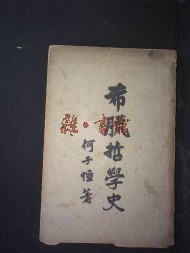 希臘哲學史
何子恒著